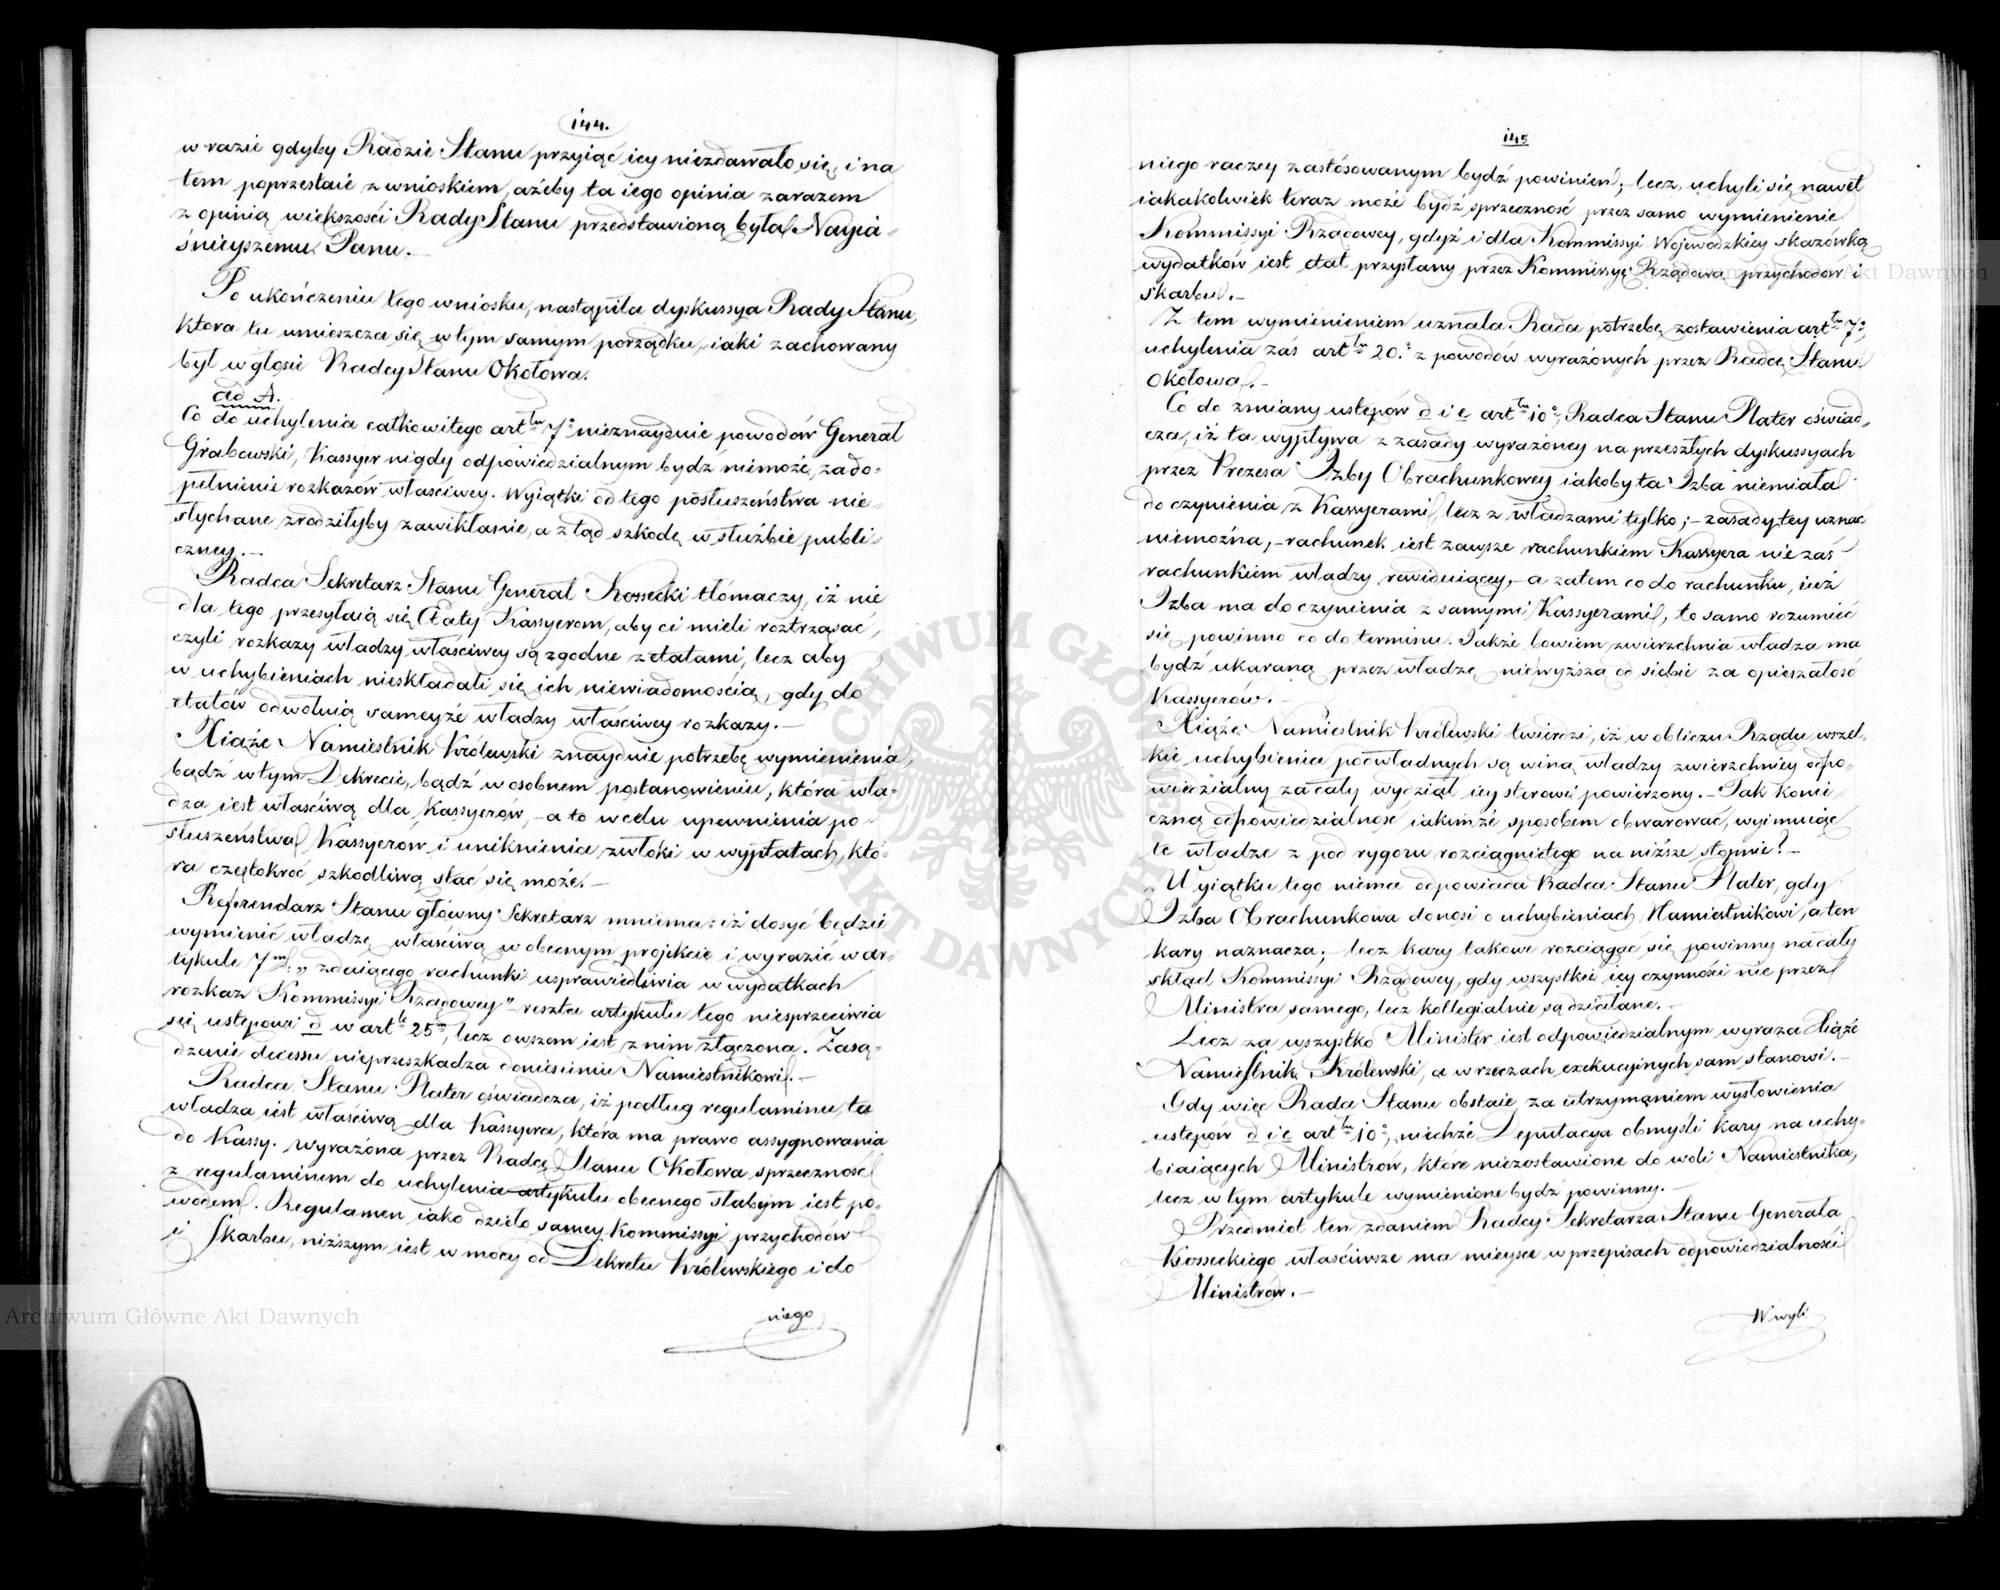 144.
w razie gdyby Radzie Stanu przyiąć iey niezdawało się, i na
tem poprzestaie z wnioskiem, ażeby ta iego opinia zarazem
z opinią większości Rady Stanu przedstawioną była Nayia-
śnieyszemu Panu.
Po ukończeniu tego wniosku, nastąpiła dyskussya Rady Stanu,
ktora tu umieszcza się w tym samym porządku, iaki zachowany
był w głosie Radcy Stanu Okołowa.
ad A.
Co do uchylenia całkowitego artłu 7º nieznayduie powodów Generał
Grabowski, Kassyer nigdy odpowiedzialnym bydz niemoże, za do-
pełnienie rozkazów właściwey. Wyiątki od tego posłuszeństwa nie-
słychane, zrodziłyby zawikłanie, a ztąd szkodę w służbie publi-
czney.—
Radca Sekretarz Stanu Generał Kossecki tłómaczy, iż nie
dla tego przesyłaią się Etaty Kassyerom, aby ci mieli roztrząsać,
czyli rozkazy władzy właściwey są zgodne z etatami, lecz aby
w uchybieniach nieskładali się ich niewiadomością, gdy do
etatów odwołuią sameyże władzy właściwey rozkazy.—
Xiąże Namiestnik Królewski znayduie potrzebę wymienienia,
bądź w tym Dekrecie, bądź w osobnem postanowieniu, która wła-
dza iest właściwą dla Kassyerów,—a to w celu upewnienia po-
słuszeństwa Kassyerów i uniknienia zwłoki w wypłatach, któ-
ra częstokroć szkodliwą stać się może.—
Referendarz Stanu główny Sekretarz mniema: iż dosyć będzie
wymienić władzę właściwą w obecnym projekcie i wyrazić w ar-
tykule 7m: „zdaiącego rachunki usprawiedliwia w wydatkach
rozkaz Kommissyi Rządowey" reszta artykułu tego niesprzeciwia
się ustępowi d w artle 25m, lecz owszem iest z nim złączona. Zasą-
dzenie decessu nieprzeszkadza doniesieniu Namiestnikowi.—
Radca Stanu Plater oświadcza, iż podług regulaminu ta
władza iest właściwą dla Kassyera, która ma prawo assygnowania
do Kassy. wyrażona przez Radcę Stanu Okołowa sprzeczność
z regulaminem do uchylenia artykułu obecnego słabym iest po-
wodem. Regulamen iako dzieło samey Kommissyi przychodów
i Skarbu, niższym iest w mocy od Dekretu Królewskiego i do
niego
145
niego raczey zastósowanym bydź powinien;—lecz, uchyli się nawet
iakakolwiek teraz może bydź sprzeczność przez samo wymienienie
Kommissyi Rządowey, gdyż i dla Kommissyi Wojewodzkiey skazówką
wydatków iest etat przysłany przez Kommissyę Rządową przychodów i
skarbu.—
Z tem wymienieniem uznała Rada potrzebę zostawienia artłu 7º,
uchylenia zaś artłu 20.º z powodów wyrażonych przez Radcę Stanu
Okołowa.—
Co do zmiany ustępów d i e artłu 10º, Radca Stanu Plater oświad-
cza, iż ta wypływa z zasady wyrażoney na przeszłych dyskussyach
przez Prezesa Izby Obrachunkowey iakoby ta Izba niemiała
do czynienia z Kassyerami, lecz z władzami tylko;—zasady tey uznać
niemożna,—rachunek iest zawsze rachunkiem Kassyera nie zaś
rachunkiem władzy rewiduiącey,—a zatem co do rachunku, iuż
Izba ma do czynienia z samymi Kassyerami, to samo rozumieć
się powinno co do terminu. Jakże bowiem, zwierzchnia władza ma
bydź ukaraną przez władzę niewyższą od siebie za opieszałość
Kassyerów.—
Xiąże Namiestnik Królewski twierdzi, iż w obliczu Rządu wszel-
kie uchybienia podwładnych są winą władzy zwierzchniey odpo-
wiedzialny za cały wydział iey sterowi powierzony.—Tak konie-
czną odpowiedzialność iakimże sposobem obwarować, wyimuiąc
te władze z pod rygoru rozciągniętego na niższe stopnie?—
Wyiątku tego niema odpowiada Radca Stanu Plater, gdy
Izba Obrachunkowa donosi o uchybieniach Namiestnikowi, a ten
kary naznacza;—lecz kary takowe rozciągać się powinny na cały
skład Kommissyi Rządowey, gdy wszystkie iey czynności nie przez
Ministra samego, lecz kollegialnie są działane.—
Lecz za wszystko Minister iest odpowiedzialnym wyraża Xiąże
Namiestnik Królewski, a w rzeczach exekucyinych sam stanowi.—
Gdy więc Rada Stanu obstaie za utrzymaniem wysłowienia
ustępów d i e artłu 10º, niechże Deputacya obmyśli kary na uchy-
biaiących Ministrów, które niezostawione do woli Namiestnika,
lecz w tym artykule wymienione bydź powinny.—
Przedmiot ten, zdaniem Radcy Sekretarza Stanu Generała
Kosseckiego właściwsze ma mieysce w przepisach odpowiedzialności
Ministrów.—
W wyli
Archiwum Główne Akt Dawnych
ARCHIWUM GŁÓWNE AKT DAWNYCH